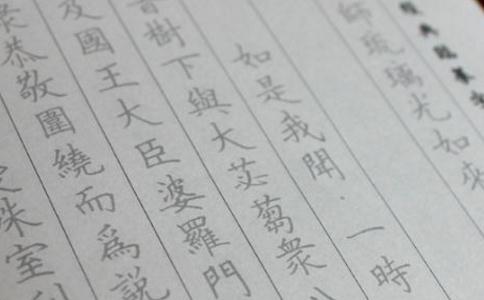 師琉璃光如來
如是我聞.一時
音樹下與大苾蒭衆八
及國王大臣婆羅門
衆恭敬圍繞而爲說
殊室利